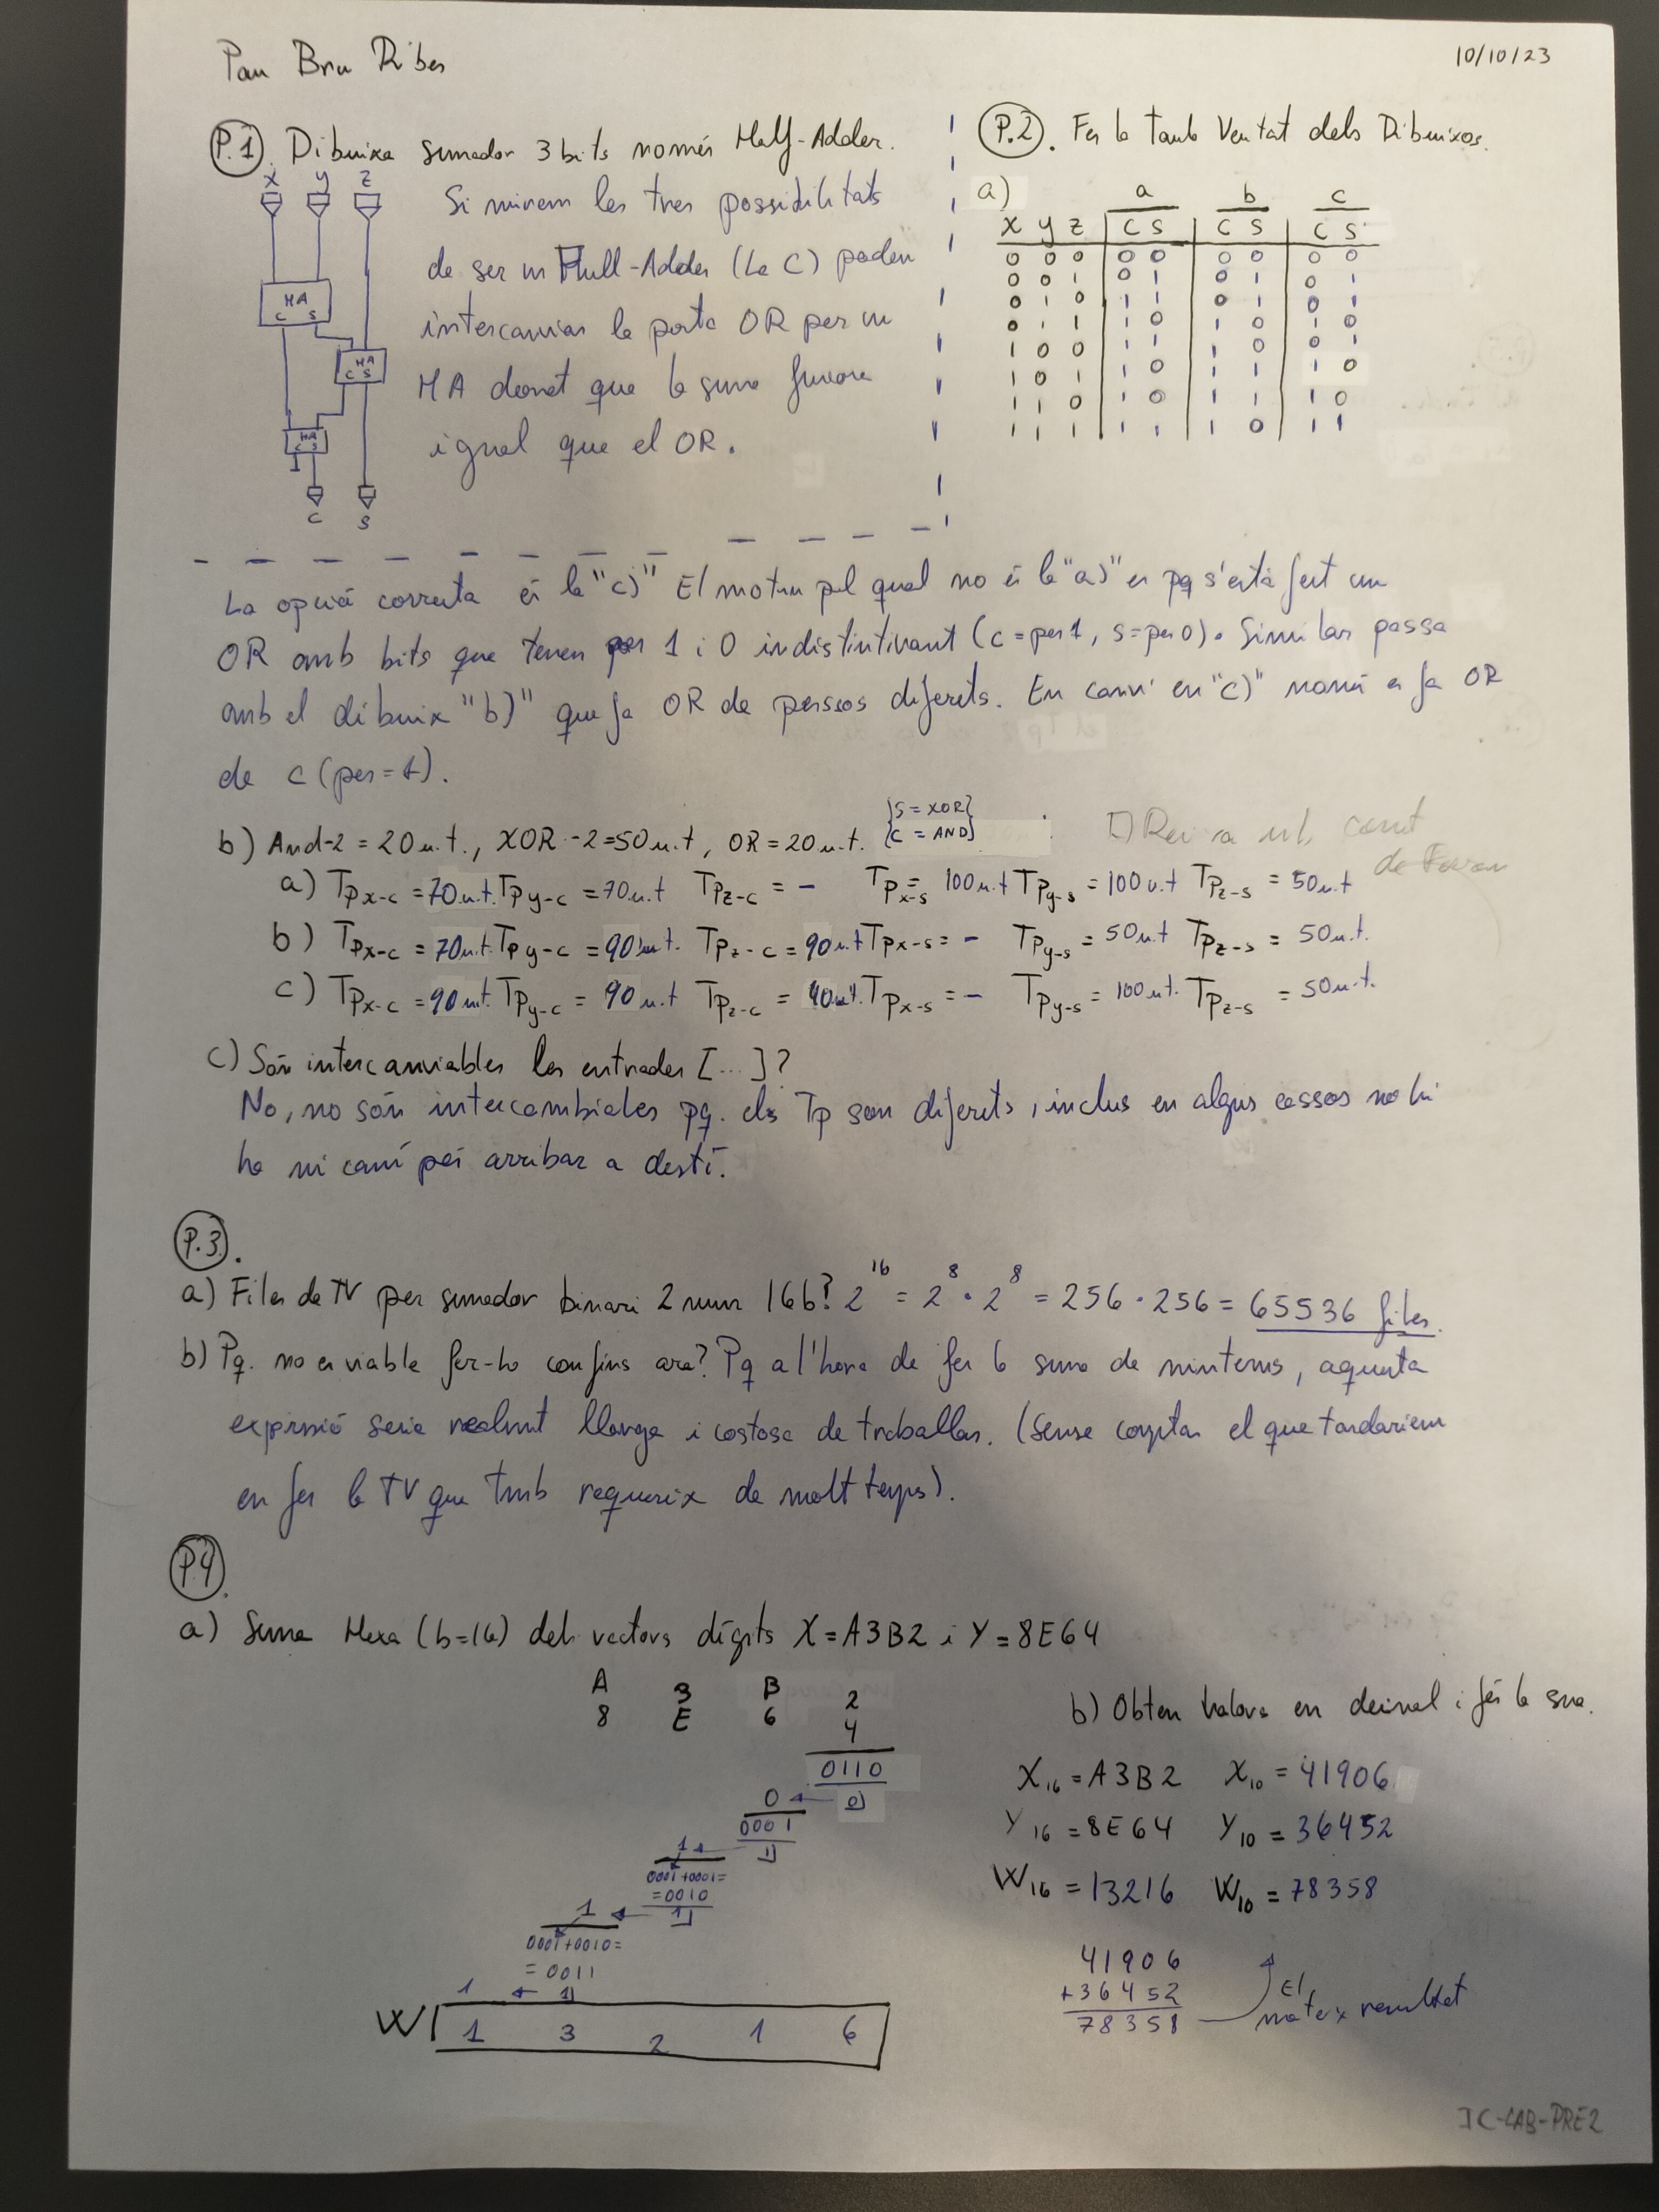 Pau Bru Ribes
10/10/23
P.1. Dibuixa sumador 3 bits només Half-Adder.
X y z
HA
C S
HA
C S
HA
C S
C S
Si mirem les tres possibilitats
de ser un Full-Adder (La C) podem
intercanviar la porta OR per un
HA donat que la suma funciona
igual que el OR.
P.2. Fer la taula Veritat dels Dibuixos.
a) a b c
X y z C S C S C S
0 0 0 0 0 0 0 0 0
0 0 1 0 1 0 1 0 1
0 1 0 1 1 0 1 0 1
0 1 1 1 0 1 0 1 0
1 0 0 1 1 1 0 0 1
1 0 1 1 0 1 1 1 0
1 1 0 1 0 1 1 1 0
1 1 1 1 1 1 0 1 1
La opció correcta és la "c)" El motiu pel qual no és la "a)" es pq s'està fent un
OR amb bits que tenen pes 1 i 0 indistintivament (c = pes 1, s = pes 0). Similar passa
amb el dibuix "b)" que fa OR de pessos diferets. En canvi en "c)" només es fa OR
de c (pes = 1).
b) And-2 = 20 u.t., XOR-2 = 50 u.t, OR = 20 u.t. {S = XOR}
{C = AND}
a) Tpx-c = 70u.t. Tpy-c = 70u.t Tpz-c = - Tpx-s = 100u.t Tpy-s = 100u.t Tpz-s = 50u.t
b) Tpx-c = 70u.t. Tpy-c = 90u.t. Tpz-c = 90u.t Tpx-s = - Tpy-s = 50u.t Tpz-s = 50u.t.
c) Tpx-c = 90u.t. Tpy-c = 90u.t Tpz-c = 40u.t. Tpx-s = - Tpy-s = 100u.t. Tpz-s = 50u.t.
c) Són intercanviables les entrades [...]?
No, no són intercambiales pq. els Tp son diferets, inclus en algus cassos no hi
ha ni camí per arribar a destí.
P.3.
a) Files de TV per sumador binari 2 num 16b? 2^16 = 2^8 · 2^8 = 256 · 256 = 65536 files.
b) Pq. no es viable fer-ho com fins ara? Pq a l'hora de fer la suma de minterms, aquesta
expresió seria realment llarga i costosa de treballar. (Sense comptar el que tardariem
en fer la TV que tmb requerix de molt temps).
P4.
a) Suma Hexa (b=16) dels vectors dígits X = A3B2 i Y = 8E64
A 3 B 2
8 E 6 4
0110
0 0
0001
1 1
0001+0001=
=0010
1 1
0001+0010=
= 0011
1 1
W 1 3 2 1 6
b) Obten valors en decimal i fés la suma.
X16 = A3B2 X10 = 41906
Y16 = 8E64 Y10 = 36452
W16 = 13216 W10 = 78358
41906
+36452
78358
El
mateix resultat
IC-LAB-PRE2